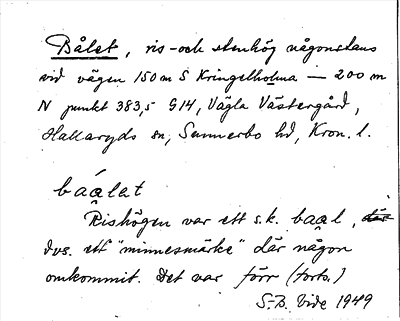 Bålet, ris- och stenhög någonstans
vid vägen 150 m S Kringelholma — 200 m
N punkt 383,5 G14, Vägla Västergård,
Hallaryds sn, Sunnerbo hd, Kron. l.
báa̯lat
Rishögen var ett s.k. baa̯l, där
dvs. ett "minnesmärke" där någon
omkommit. Det var förr (forts.)
S.-B. Vide 1949